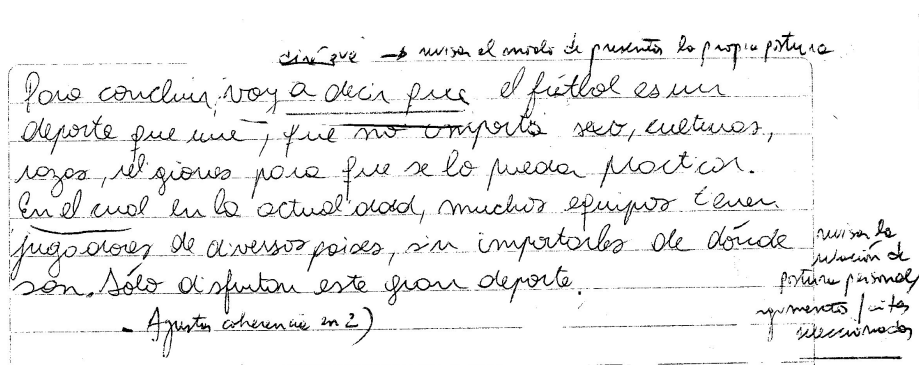 diré que → revisar el modo de presentar la propia postura
Para concluir, voy a decir que el fútbol es un
deporte que une, que no importa sexo, culturas,
razas, religiones para que se lo pueda practicar.
En el cual en la actualidad, muchos equipos tienen
jugadores de diversos paises, sin importarles de dónde
son. Sólo disfrutan este gran deporte.
- Ajustar coherencia en 2)
revisar la
relación de
postura personal/
argumentos / citas
seleccionadas